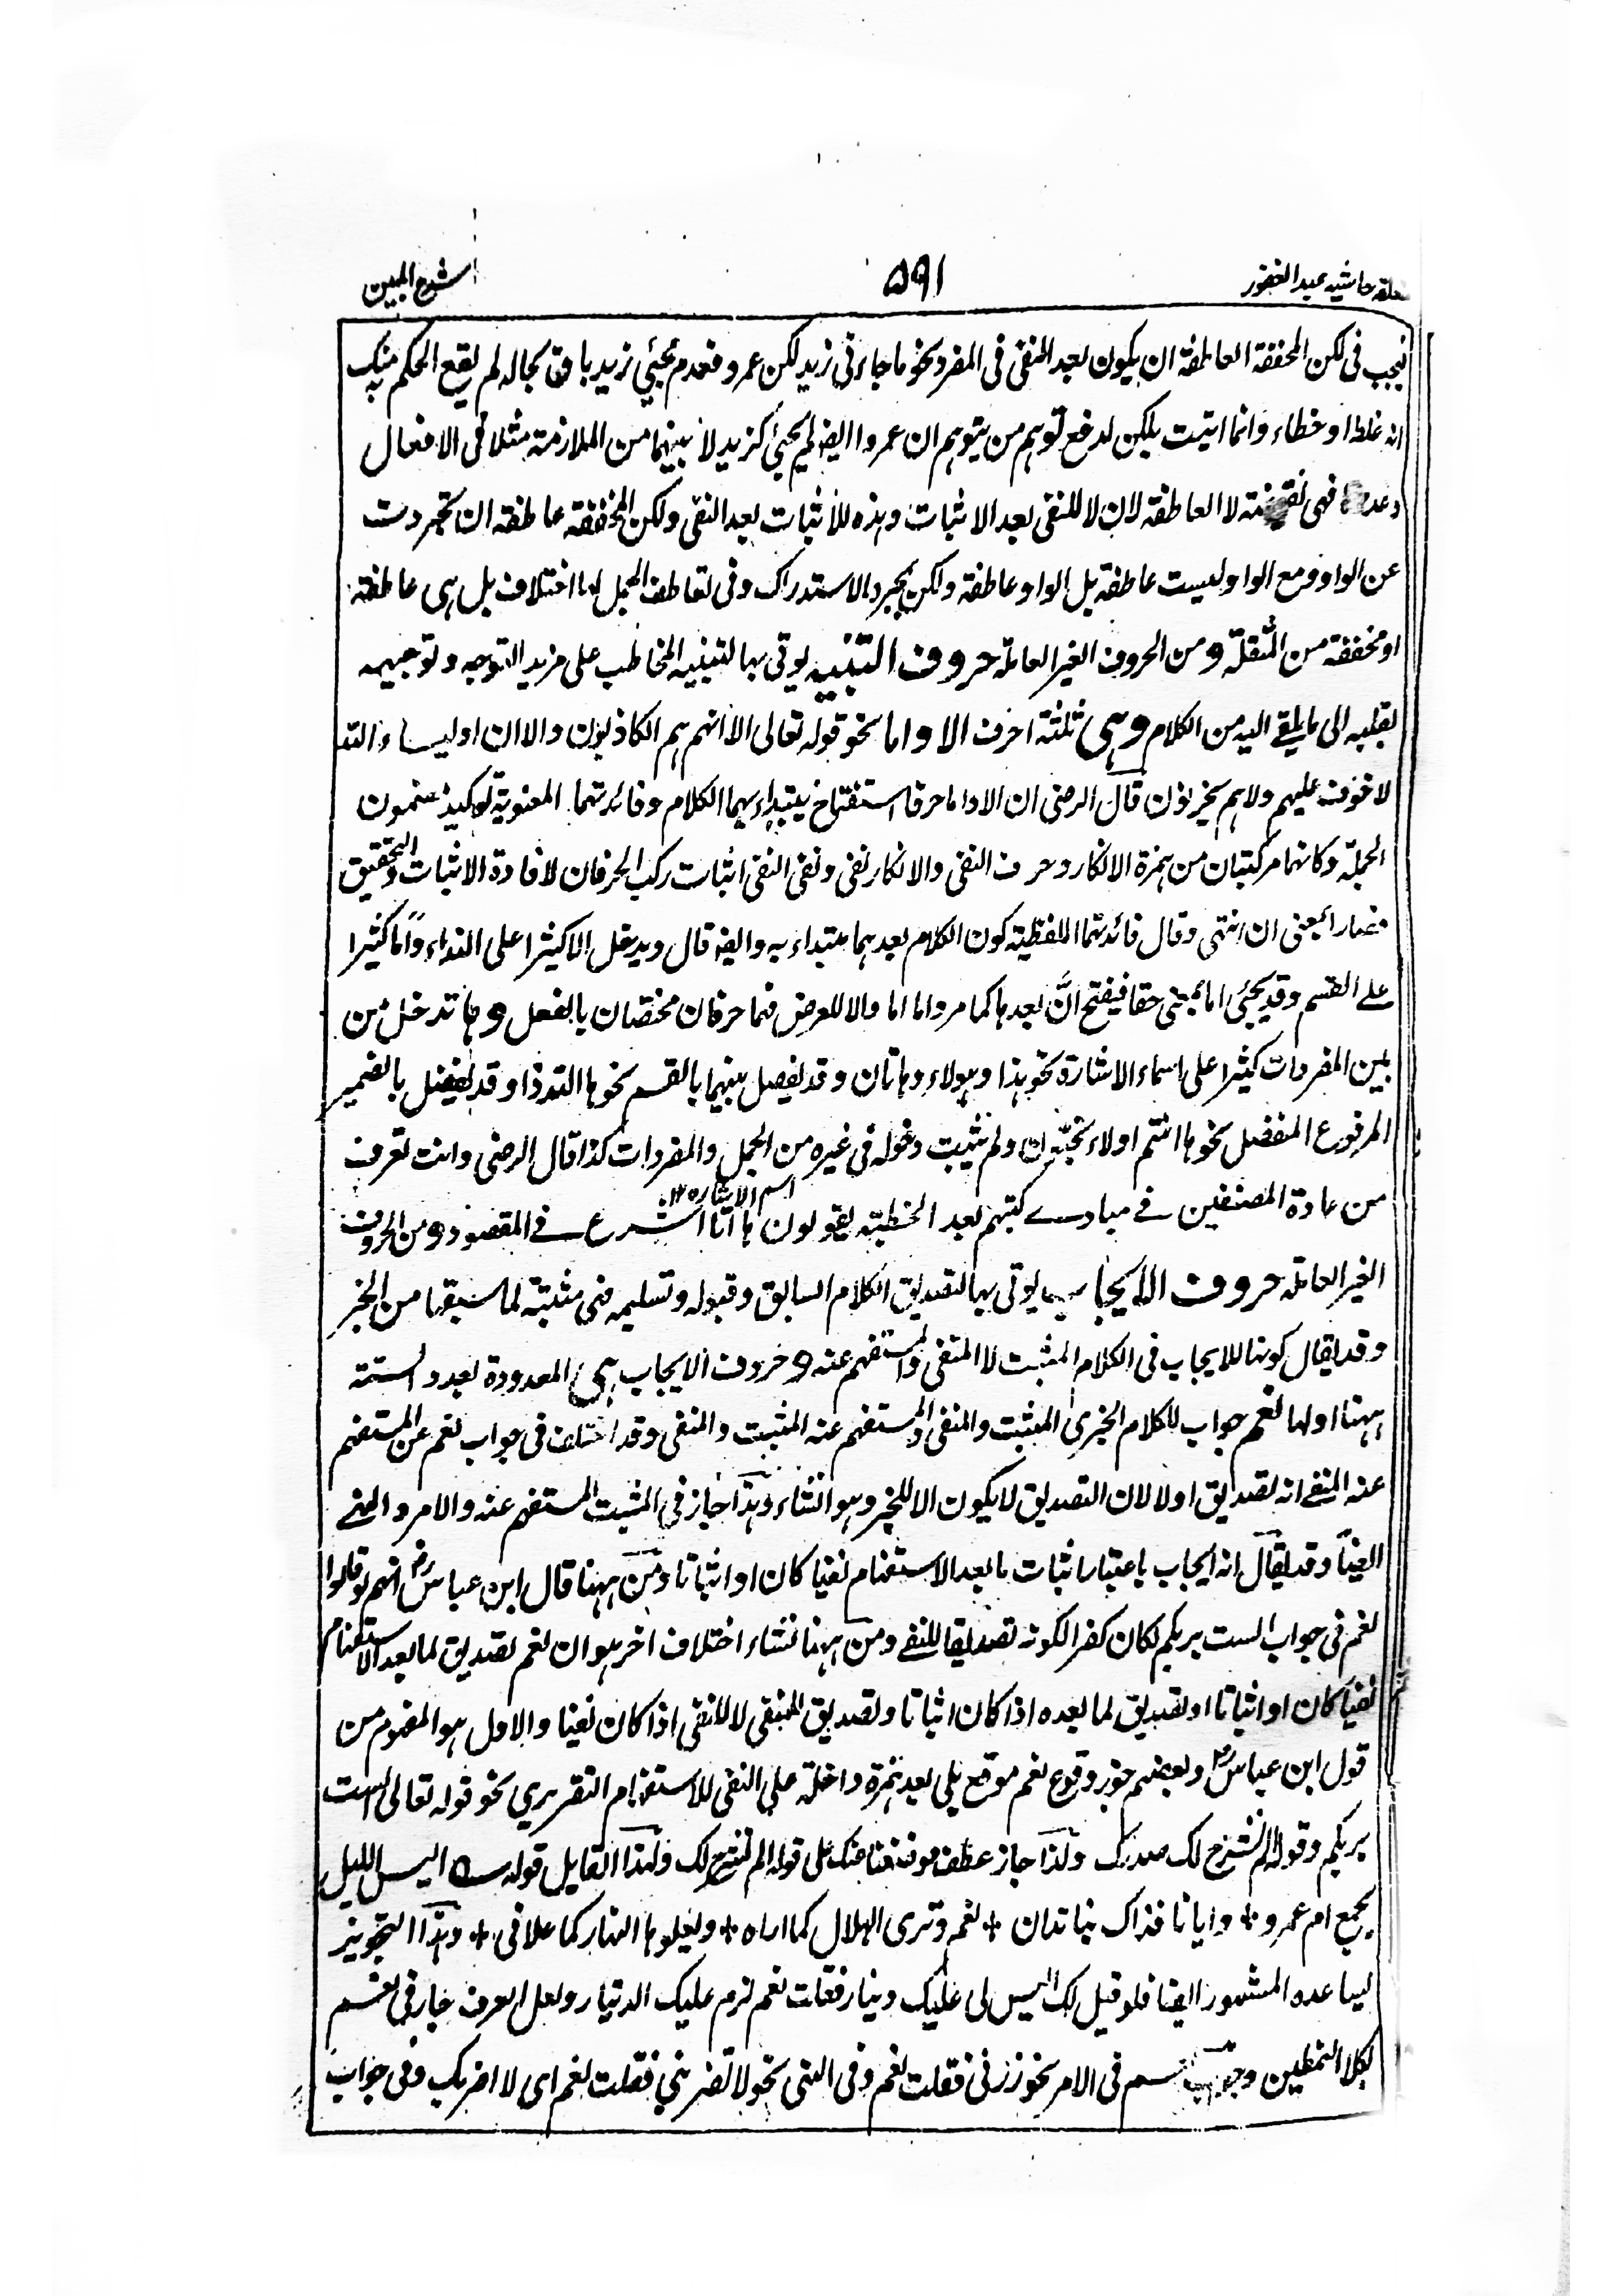 تكملة حاشيه عبد الغفور
٥٩١
شرح المبين
فيجب فى لكن المخففة العاطفة ان يكون بعد المنفى فى المفرد نحو ما جاءنى زيد لكن عمرو فعدم مجئي زيد باق بحاله لم يقع الحكم به منك
انه غلط او خطاء وانما اتيت بلكن لدفع توهم من يتوهم ان عمروا ايضا لم يجئ كزيد لا بينهما من الملازمة مثلا فى الافعال
وعدمها فهى نقيضة لا العاطفة لان لا للنفى بعد الاثبات وهذه للاثبات بعد النفى ولكن المخففة عاطفة ان تجردت
عن الواو ومع الواو ليست عاطفة بل الواو عاطفة ولكن لمجرد الاستدراك وفى تعاطف الجمل لها اختلاف بل هى عاطفة
او مخففة من المثقلة ومن الحروف الغير العاملة حروف التنبيه يوتى بها لتنبيه المخاطب على مزيد التوجه وتوجيهه
بقلبه الى ما يلقى اليه من الكلام وهى ثلثة احرف الا و اما نحو قوله تعالى الا انهم هم الكاذبون والا ان اولياء الله
لا خوف عليهم ولا هم يحزنون قال الرضى ان الا واما حرفا استفتاح يبتداء بهما الكلام وفائدتهما المعنوية توكيد مضمون
الجملة وكانهما مركبتان من همزة الانكار وحرف النفى والانكار نفى ونفى النفى اثبات ركب الحرفان لافادة الاثبات والتحقيق
فصارا بمعنى ان انتهى وقال فائدتهما اللفظية كون الكلام بعدهما مبتداء به وايضا قال ويدخل الا كثيرا على النداء واما كثيرا
على القسم وقد يجئ اما بمعنى حقا فيفتح انّ بعدها كما مر واما اما والا للعرض فهما حرفان مختصان بالفعل وها تدخل من
بين المفردات كثيرا على اسماء الاشارة نحو هذا وهولاء وهاتان وقد يفصل بينهما بالقسم نحو ها الله ذا وقد يفصل بالضمير
المرفوع المنفصل نحو ها انتم اولاء تحبّون ولم يثبت دخوله فى غيره من الجمل والمفردات كذا قال الرضى وانت تعرف
اسم الاشاره ١٢
من عادة المصنفين فى مبادى كتبهم بعد الخطبة يقولون ها انا اشرع فى المقصود ومن الحروف
الغير العاملة حروف الايجاب يوتى بها لتصديق الكلام السابق وقبوله وتسليمه فهى مثبتة لما سبقها من الخبر
وقد يقال كونها للايجاب فى الكلام المثبت لا المنفى والمستفهم عنه وحروف الايجاب هى المعدودة بعدد ستة
ههنا اولها نعم جواب للكلام الخبرى المثبت والمنفى والمستفهم عنه المثبت والمنفى وقد اختلف فى جواب نعم عن المستفهم
عنه المنفى انه تصديق اولا لان التصديق لا يكون الا للخبر وهو انشاء وهذا جاز فى المثبت المستفهم عنه والامر والنهى
ايضا وقد يقال انه ايجاب باعتبار اثبات ما بعد الاستفهام نفيا كان او اثباتا ومن ههنا قال ابن عباس رض انهم لو قالوا
نعم فى جواب الست بربكم لكان كفرا لكونه تصديقا للنفى ومن ههنا نشاء اختلاف اخر هو ان نعم تصديق لما بعد الاستفهام
نفيا كان او اثباتا او تصديق لما بعده اذا كان اثباتا وتصديق المنفى لا للنفى اذا كان نفيا والاول هو المفهوم من
قول ابن عباس رض وبعضهم جوز وقوع نعم موقع بلى بعد همزة داخلة على النفى للاستفهام التقريرى نحو قوله تعالى الست
بربكم وقوله الم نشرح لك صدرك ولذا جاز عطف ووضعنا عنك على قوله الم نشرح لك ولهذا القايل قوله اليس الليل
يجمع ام عمرو ٭ وايانا فذاك بنا تدان ٭ نعم وترى الهلال كما اراه ٭ ويعلوها النهار كما علانى ٭ وهذا التجويز
يساعده المشهور ايضا فلو قيل لك اليس لى عليك دينار فقلت نعم لزم عليك الدينار ولعل العرف جار فى نعم
لكلا النمطين وجواب نعم فى الامر نحو زرنى فقلت نعم وفى النهى نحو لا تضربنى فقلت نعم اى لا اضربك وفى جواب